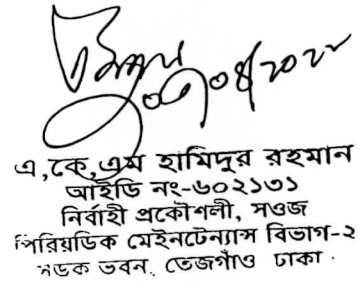 ০৩/০৪/২০২২
এ,কে,এম হামিদুর রহমান
আইডি নং-৬০২১৩১
নির্বাহী প্রকৌশলী, সওজ
পিরিয়ডিক মেইনটেন্যান্স বিভাগ-২
সড়ক ভবন, তেজগাঁও ঢাকা।